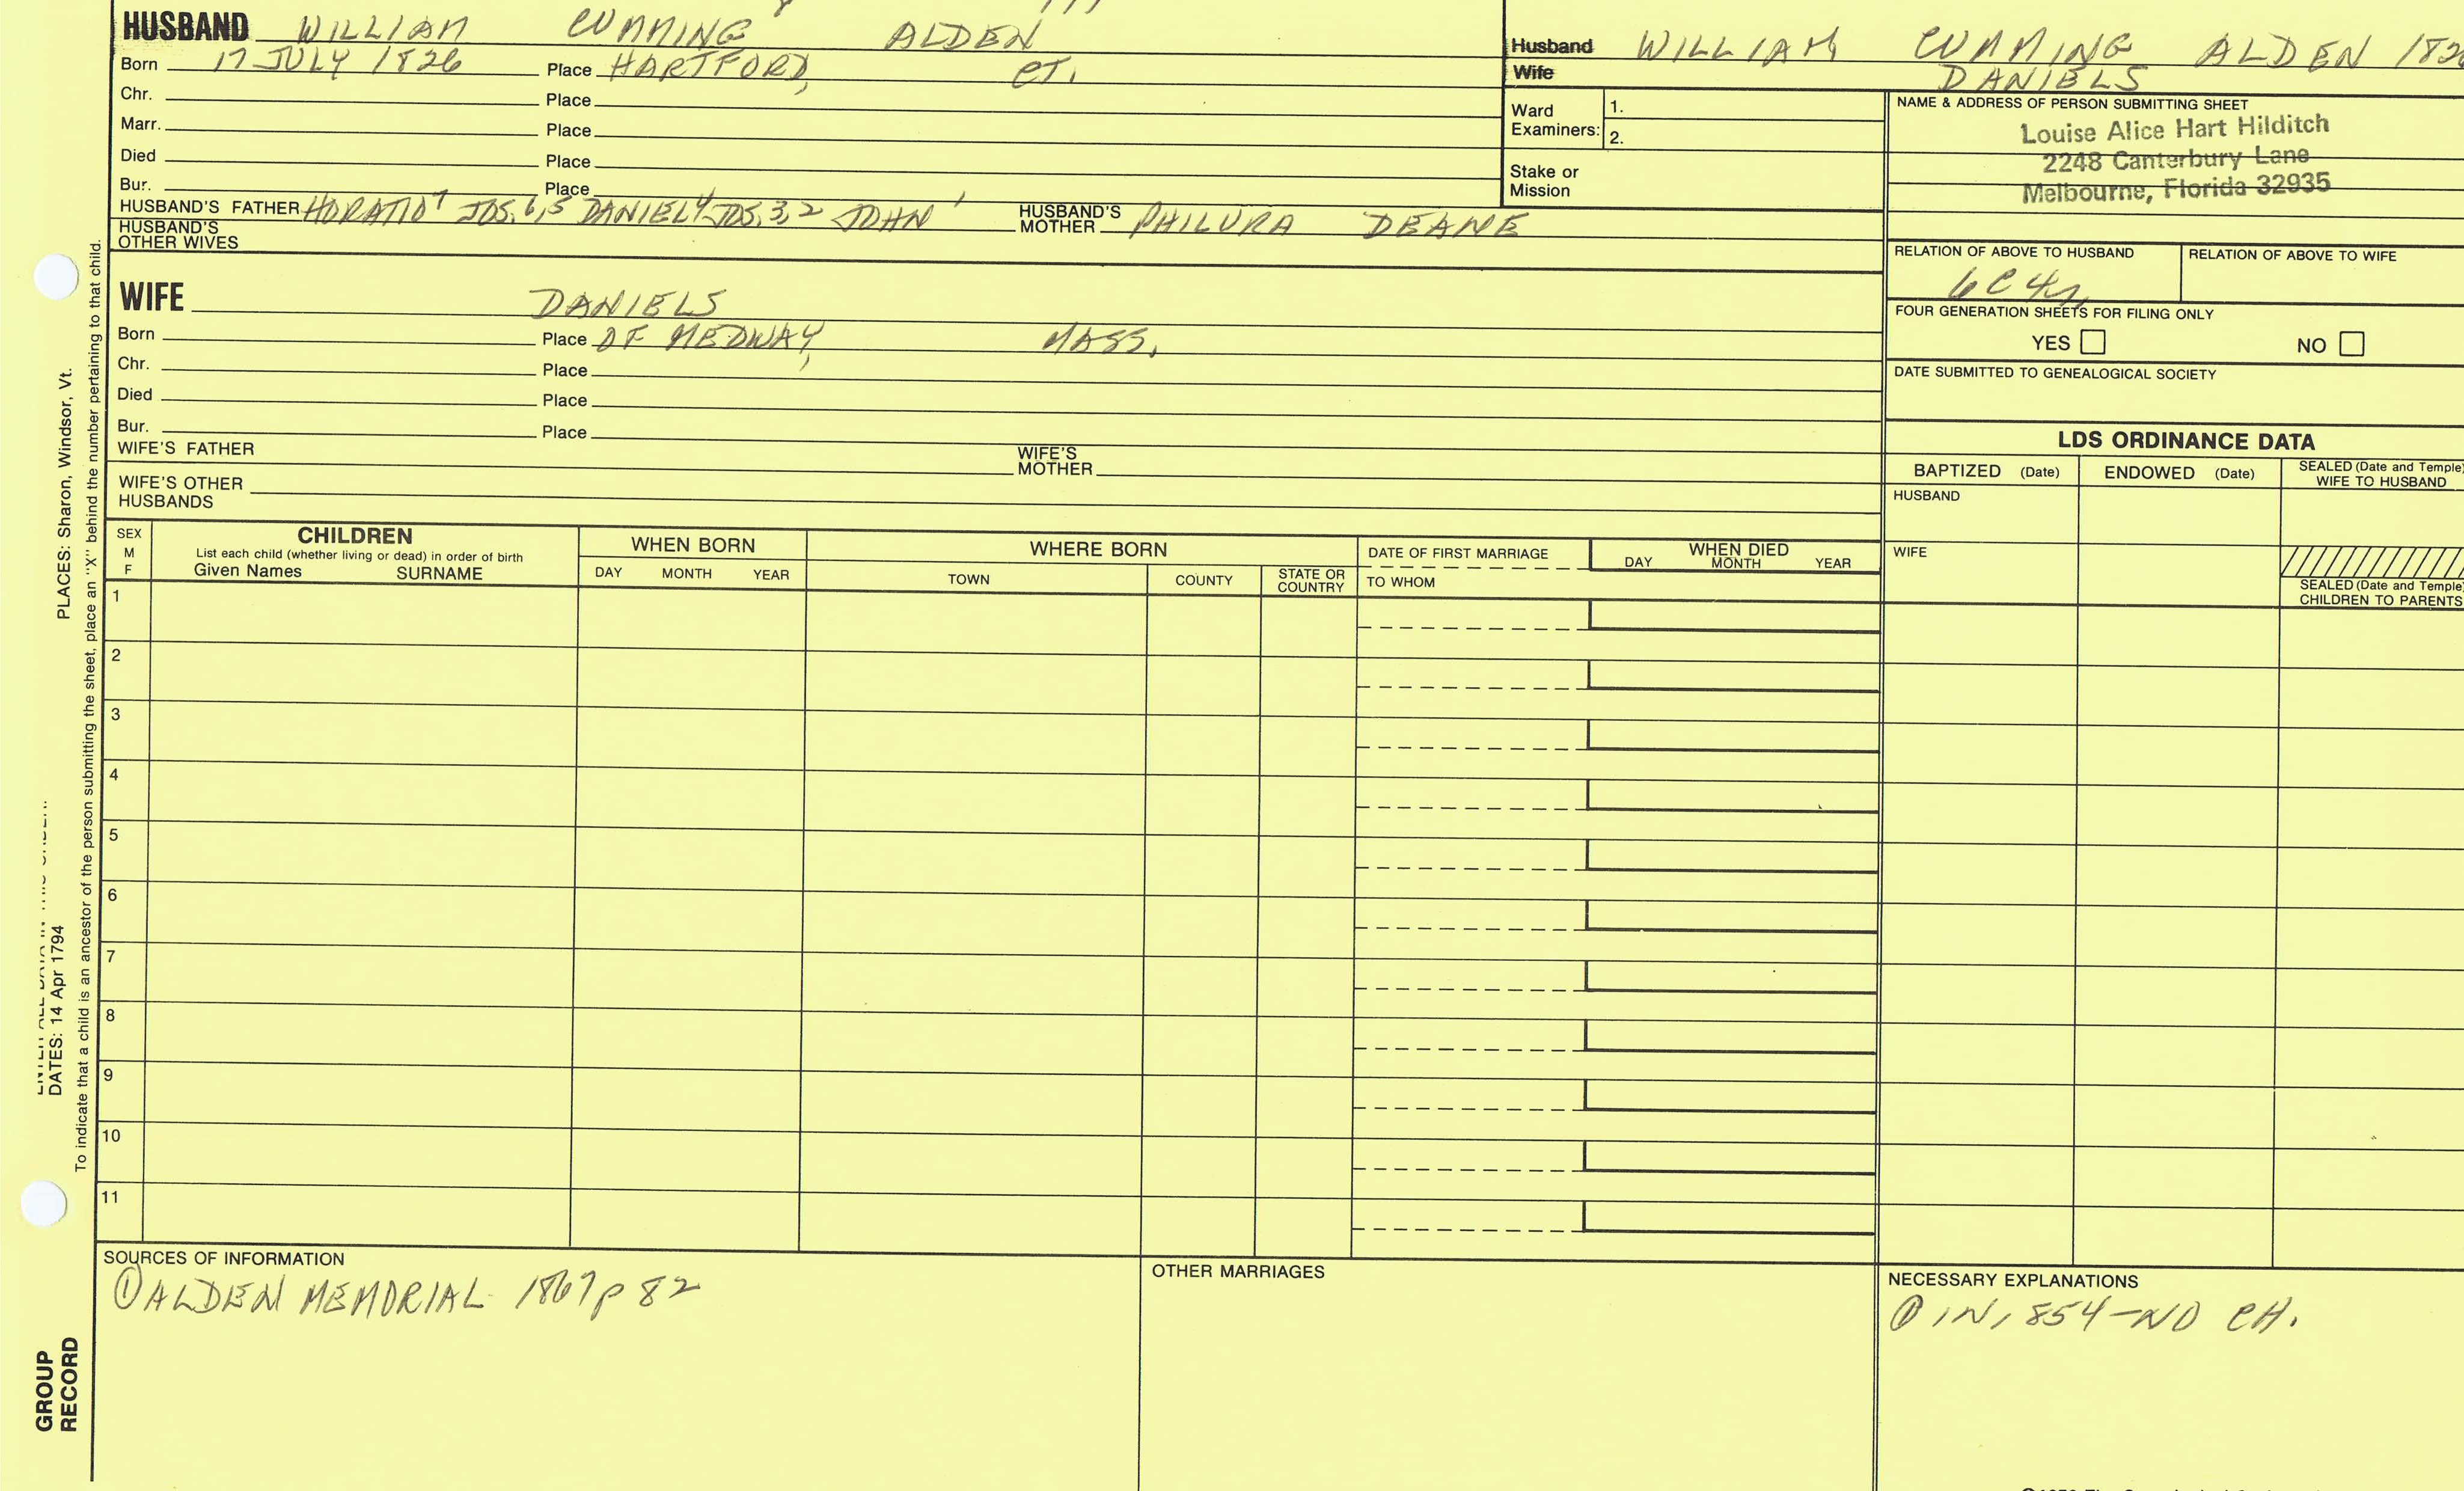 HUSBAND WILLIAM CUMMING ALDEN
Born 17 JULY 1826 Place HARTFORD, CT.
Chr. Place
Marr. Place
Died Place
Bur. Place
HUSBAND'S FATHER HORATIO7 JOS.6,5 DANIEL4 JOS.3,2 JOHN1 HUSBAND'S MOTHER PHILURA DEANE
HUSBAND'S OTHER WIVES
Husband WILLIAM CUMMING ALDEN 182
Wife DANIELS
Ward Examiners: 1.
2.
Stake or Mission
NAME & ADDRESS OF PERSON SUBMITTING SHEET
Louise Alice Hart Hilditch
2248 Canterbury Lane
Melbourne, Florida 32935
RELATION OF ABOVE TO HUSBAND RELATION OF ABOVE TO WIFE
6C4r
FOUR GENERATION SHEETS FOR FILING ONLY
YES NO
DATE SUBMITTED TO GENEALOGICAL SOCIETY
WIFE DANIELS
Born Place OF MEDWAY, MASS.
Chr. Place
Died Place
Bur. Place
WIFE'S FATHER WIFE'S MOTHER
WIFE'S OTHER HUSBANDS
LDS ORDINANCE DATA
BAPTIZED (Date) ENDOWED (Date) SEALED (Date and Temple) WIFE TO HUSBAND
HUSBAND
WIFE
SEALED (Date and Temple) CHILDREN TO PARENTS
SEX M F
CHILDREN
List each child (whether living or dead) in order of birth
Given Names SURNAME
WHEN BORN
DAY MONTH YEAR
WHERE BORN
TOWN COUNTY STATE OR COUNTRY
DATE OF FIRST MARRIAGE
TO WHOM
WHEN DIED
DAY MONTH YEAR
1
2
3
4
5
6
7
8
9
10
11
SOURCES OF INFORMATION
① ALDEN MEMORIAL 1867 p 82
OTHER MARRIAGES
NECESSARY EXPLANATIONS
① IN 1854 — NO CH.
PLACES: Sharon, Windsor, Vt.
DATES: 14 Apr 1794
To indicate that a child is an ancestor of the person submitting the sheet, place an "X" behind the number pertaining to that child.
GROUP RECORD